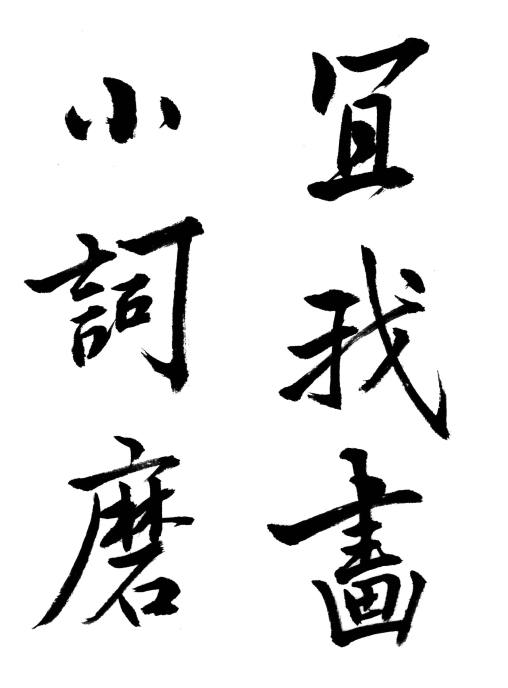 宜我畫
小詞磨